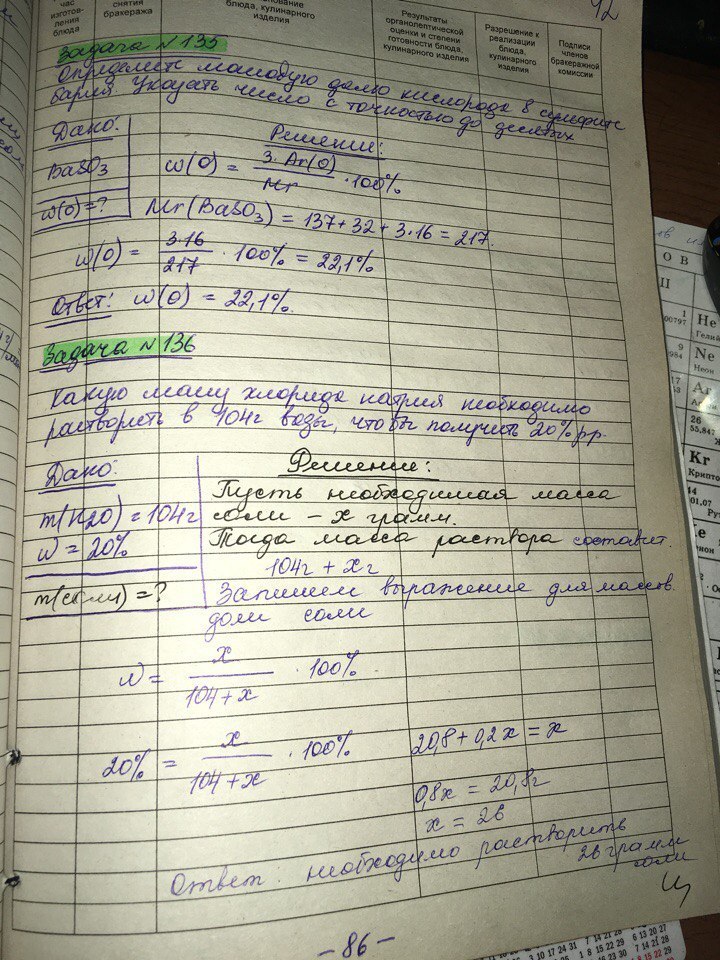 час изготовления блюда
снятия бракеража
наименование блюда, кулинарного изделия
Результаты органолептической оценки и степени готовности блюда, кулинарного изделия
Разрешение к реализации блюда, кулинарного изделия
Подписи членов бракеражной комиссии
Задача №135
Определите массовую долю кислорода в сульфите
бария. Указать число с точностью до десятых
Дано:
Решение:
BaSO3
w(O) = 3·Ar(O) / Mr · 100%
w(O)=?
Mr(BaSO3) = 137+32+3·16 = 217.
w(O) = 3·16 / 217 · 100% = 22,1%
Ответ: w(O) = 22,1%.
Задача №136
Какую массу хлорида натрия необходимо
растворить в 104г воды, чтобы получить 20% р-р.
Дано:
Решение:
m(H2O) = 104г
w = 20%
m(соли) = ?
Пусть необходимая масса
соли – x грамм.
Тогда масса раствора составит.
104г + xг
Запишем выражение для массов.
доли соли
w = x / 104+x · 100%
20% = x / 104+x · 100%
20,8+0,2x = x
0,8x = 20,8г
x = 26
Ответ: необходимо растворить
26 грамм
соли
-86-
He
Гелий
Ne
Неон
Ar
Kr